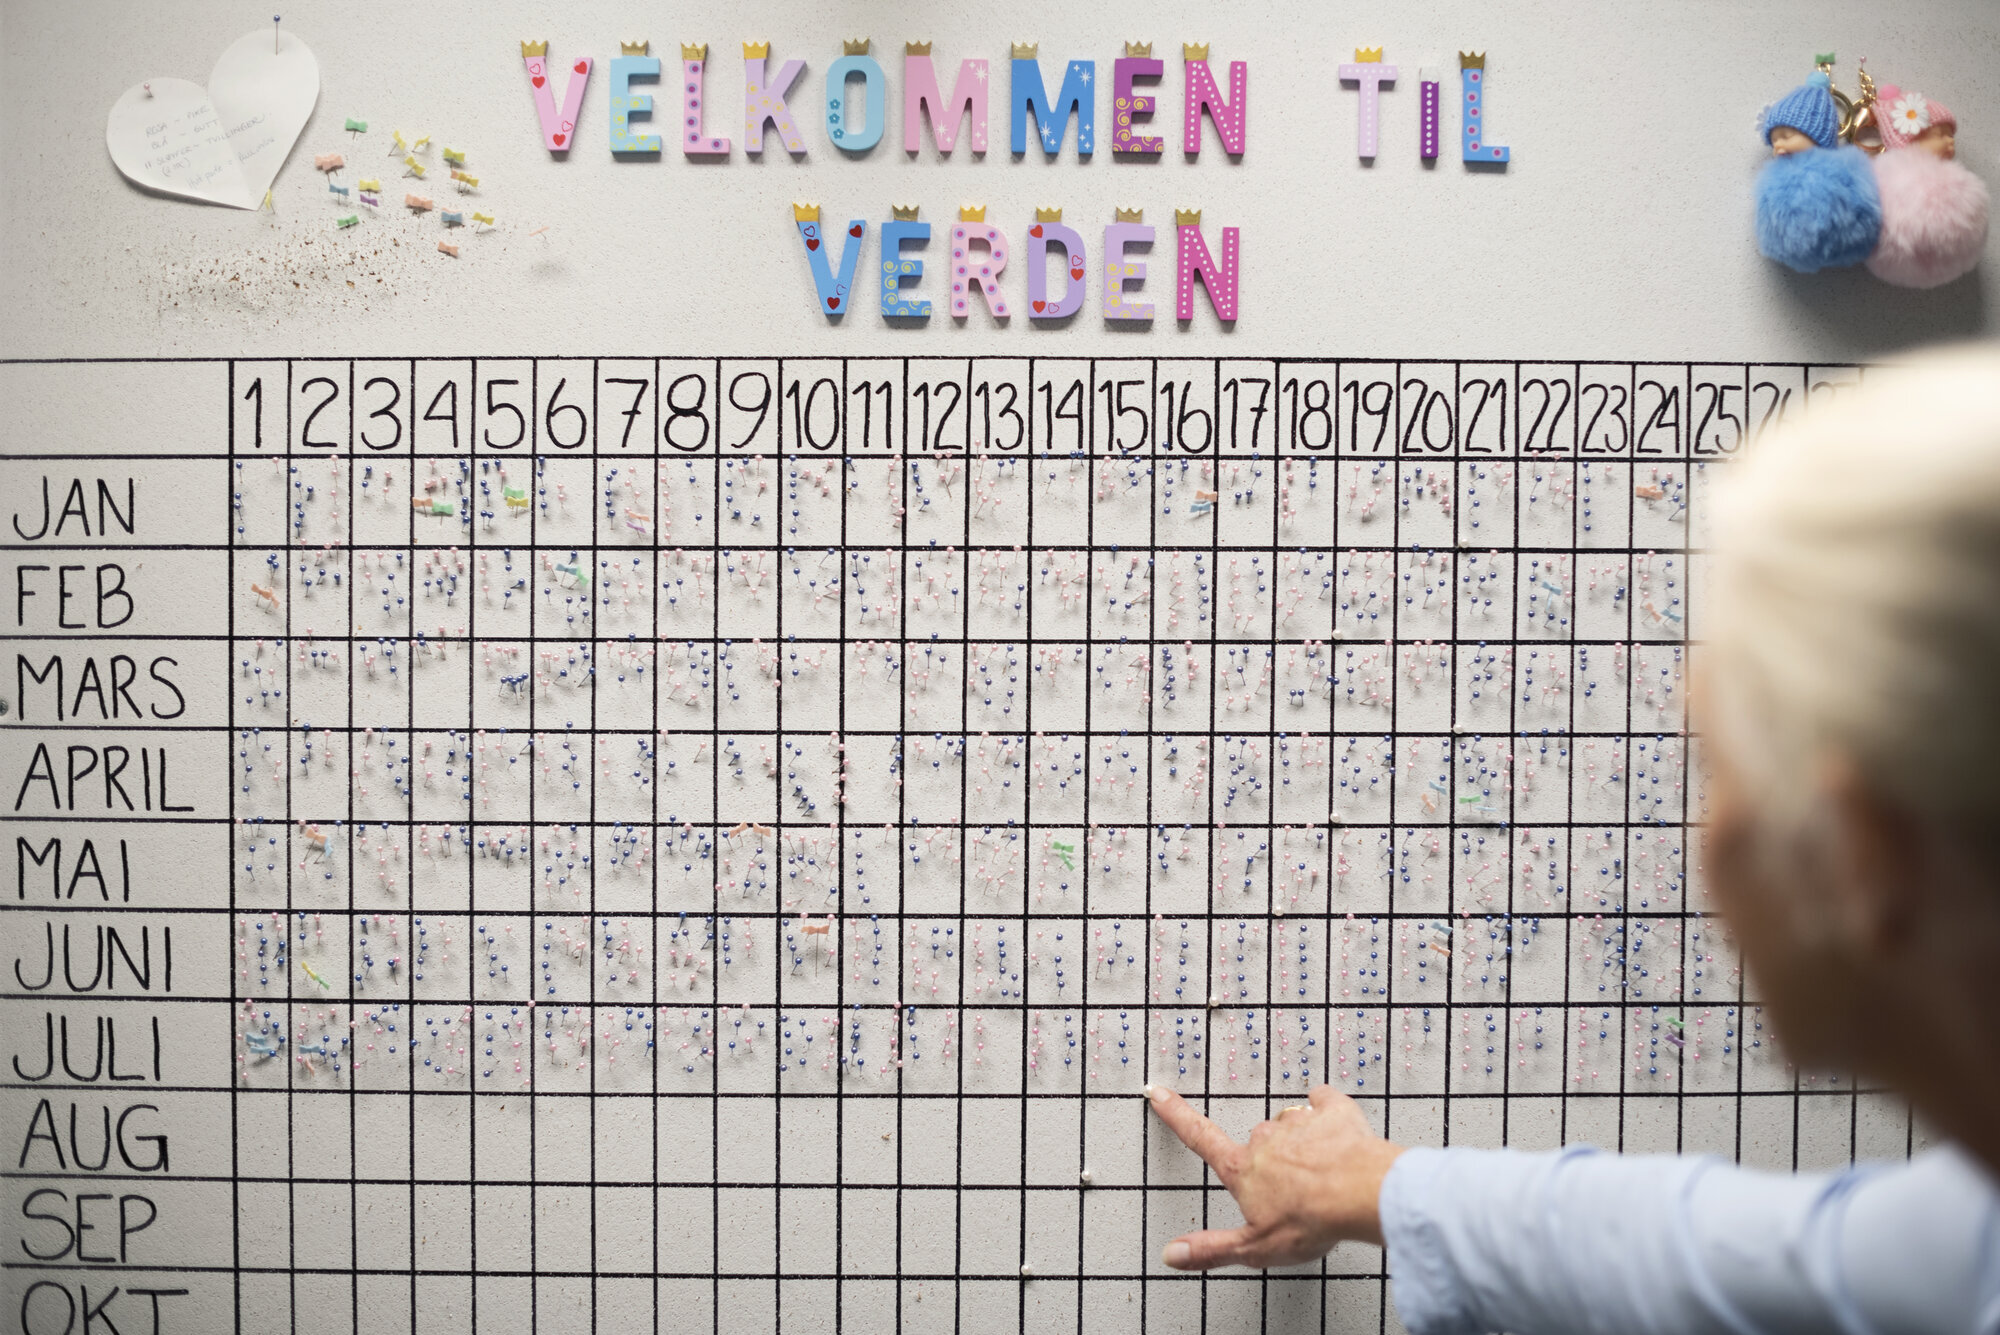 VELKOMMEN TIL
VERDEN
ROSA - PIKE
BLÅ - GUTT
1 2 3 4 5 6 7 8 9 10 11 12 13 14 15 16 17 18 19 20 21 22 23 24 25 26
JAN
FEB
MARS
APRIL
MAI
JUNI
JULI
AUG
SEP
OKT